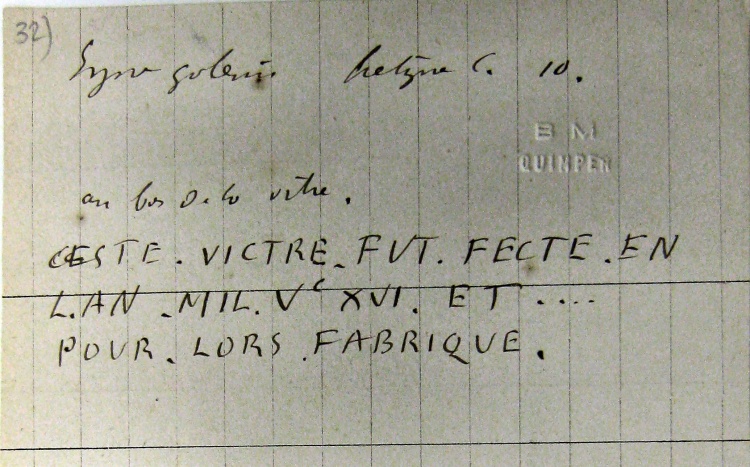 32)
10.
B M
QUIMPER
au bas de la vitre.
CESTE. VICTRE. FUT. FECTE. EN
L. AN. MIL. Vᶜ XVI. ET ....
POUR. LORS. FABRIQUE.